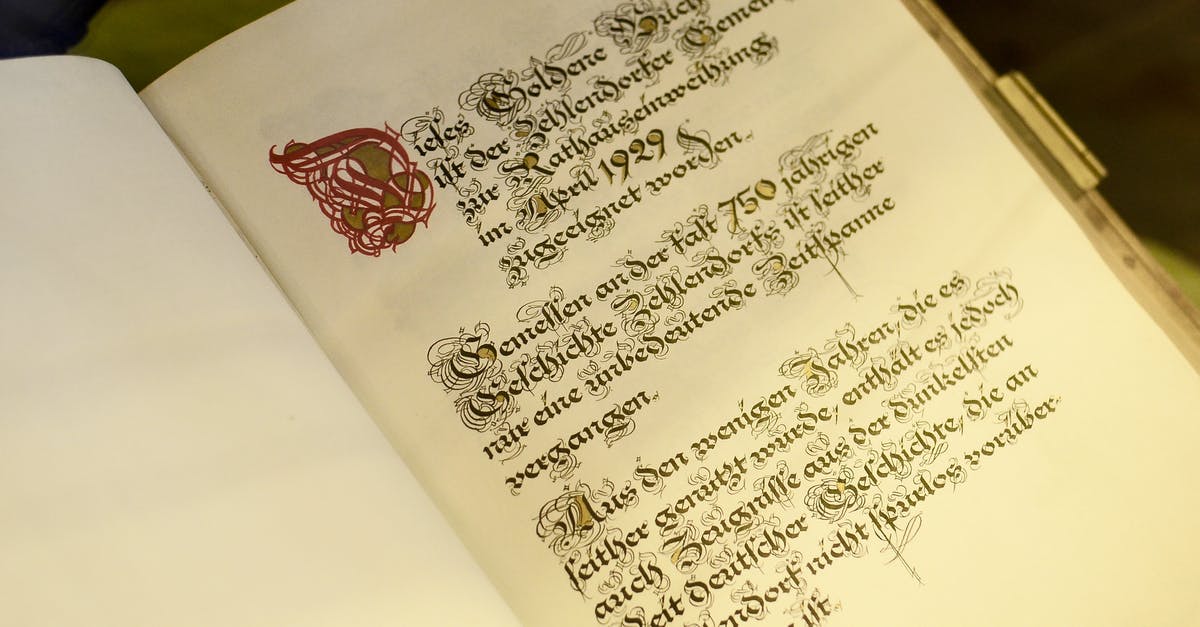 Dieses Goldene Buch
ist der Zehlendorfer Gemein
zur Rathauseinweihung
im April 1929
zugeeignet worden.
Gemessen an der fast 750 jährigen
Geschichte Zehlendorfs ist seither
nur eine unbedeutende Zeitspanne
vergangen.
Aus den wenigen Jahren, die es
seither genutzt wurde, enthält es jedoch
auch Zeugnisse aus der dunkelsten
Zeit deutscher Geschichte, die an
endorf nicht spurlos vorüber-
ist.